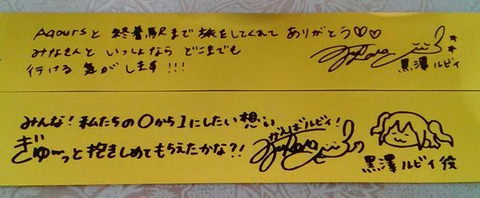 Aqoursと 終着駅まで 旅をしてくれて ありがとう♡♡
みなさんと いっしょなら どこまでも
行ける 気がします!!!
黒澤ルビィ
みんな!私たちの0から1にしたい想い
ぎゅーっと抱きしめてもらえたかな?!
がんばルビィ!
黒澤ルビィ役